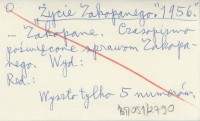 "Życie Zakopanego." 1956.
– Zakopane. Czasopismo
poświęcone sprawom Zakopa-
nego. Wyd:
Red:
Wyszło tylko 5 numerów.